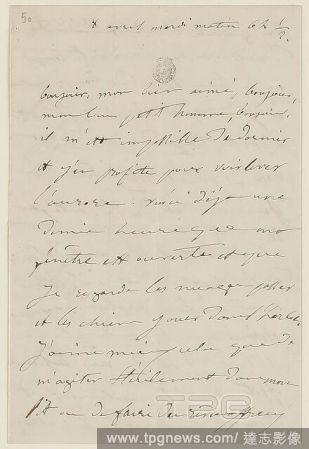 50
8 avril mardi matin 6h ½
bonjour, mon bien aimé, bonjour,
mon bon petit homme, bonjour,
il m'est impossible de dormir
et j'en profite pour voir lever
l'aurore. voici déjà une
demie heure que ma
fenêtre est ouverte et que
je regarde les nuages passer
et les chiens jouer dans l'herbe.
J'aime mieux cela que de
m'agiter stérilement dans mon
lit ou de faire des rêves affreux
TPG
www.tpgnews.com/達志影像